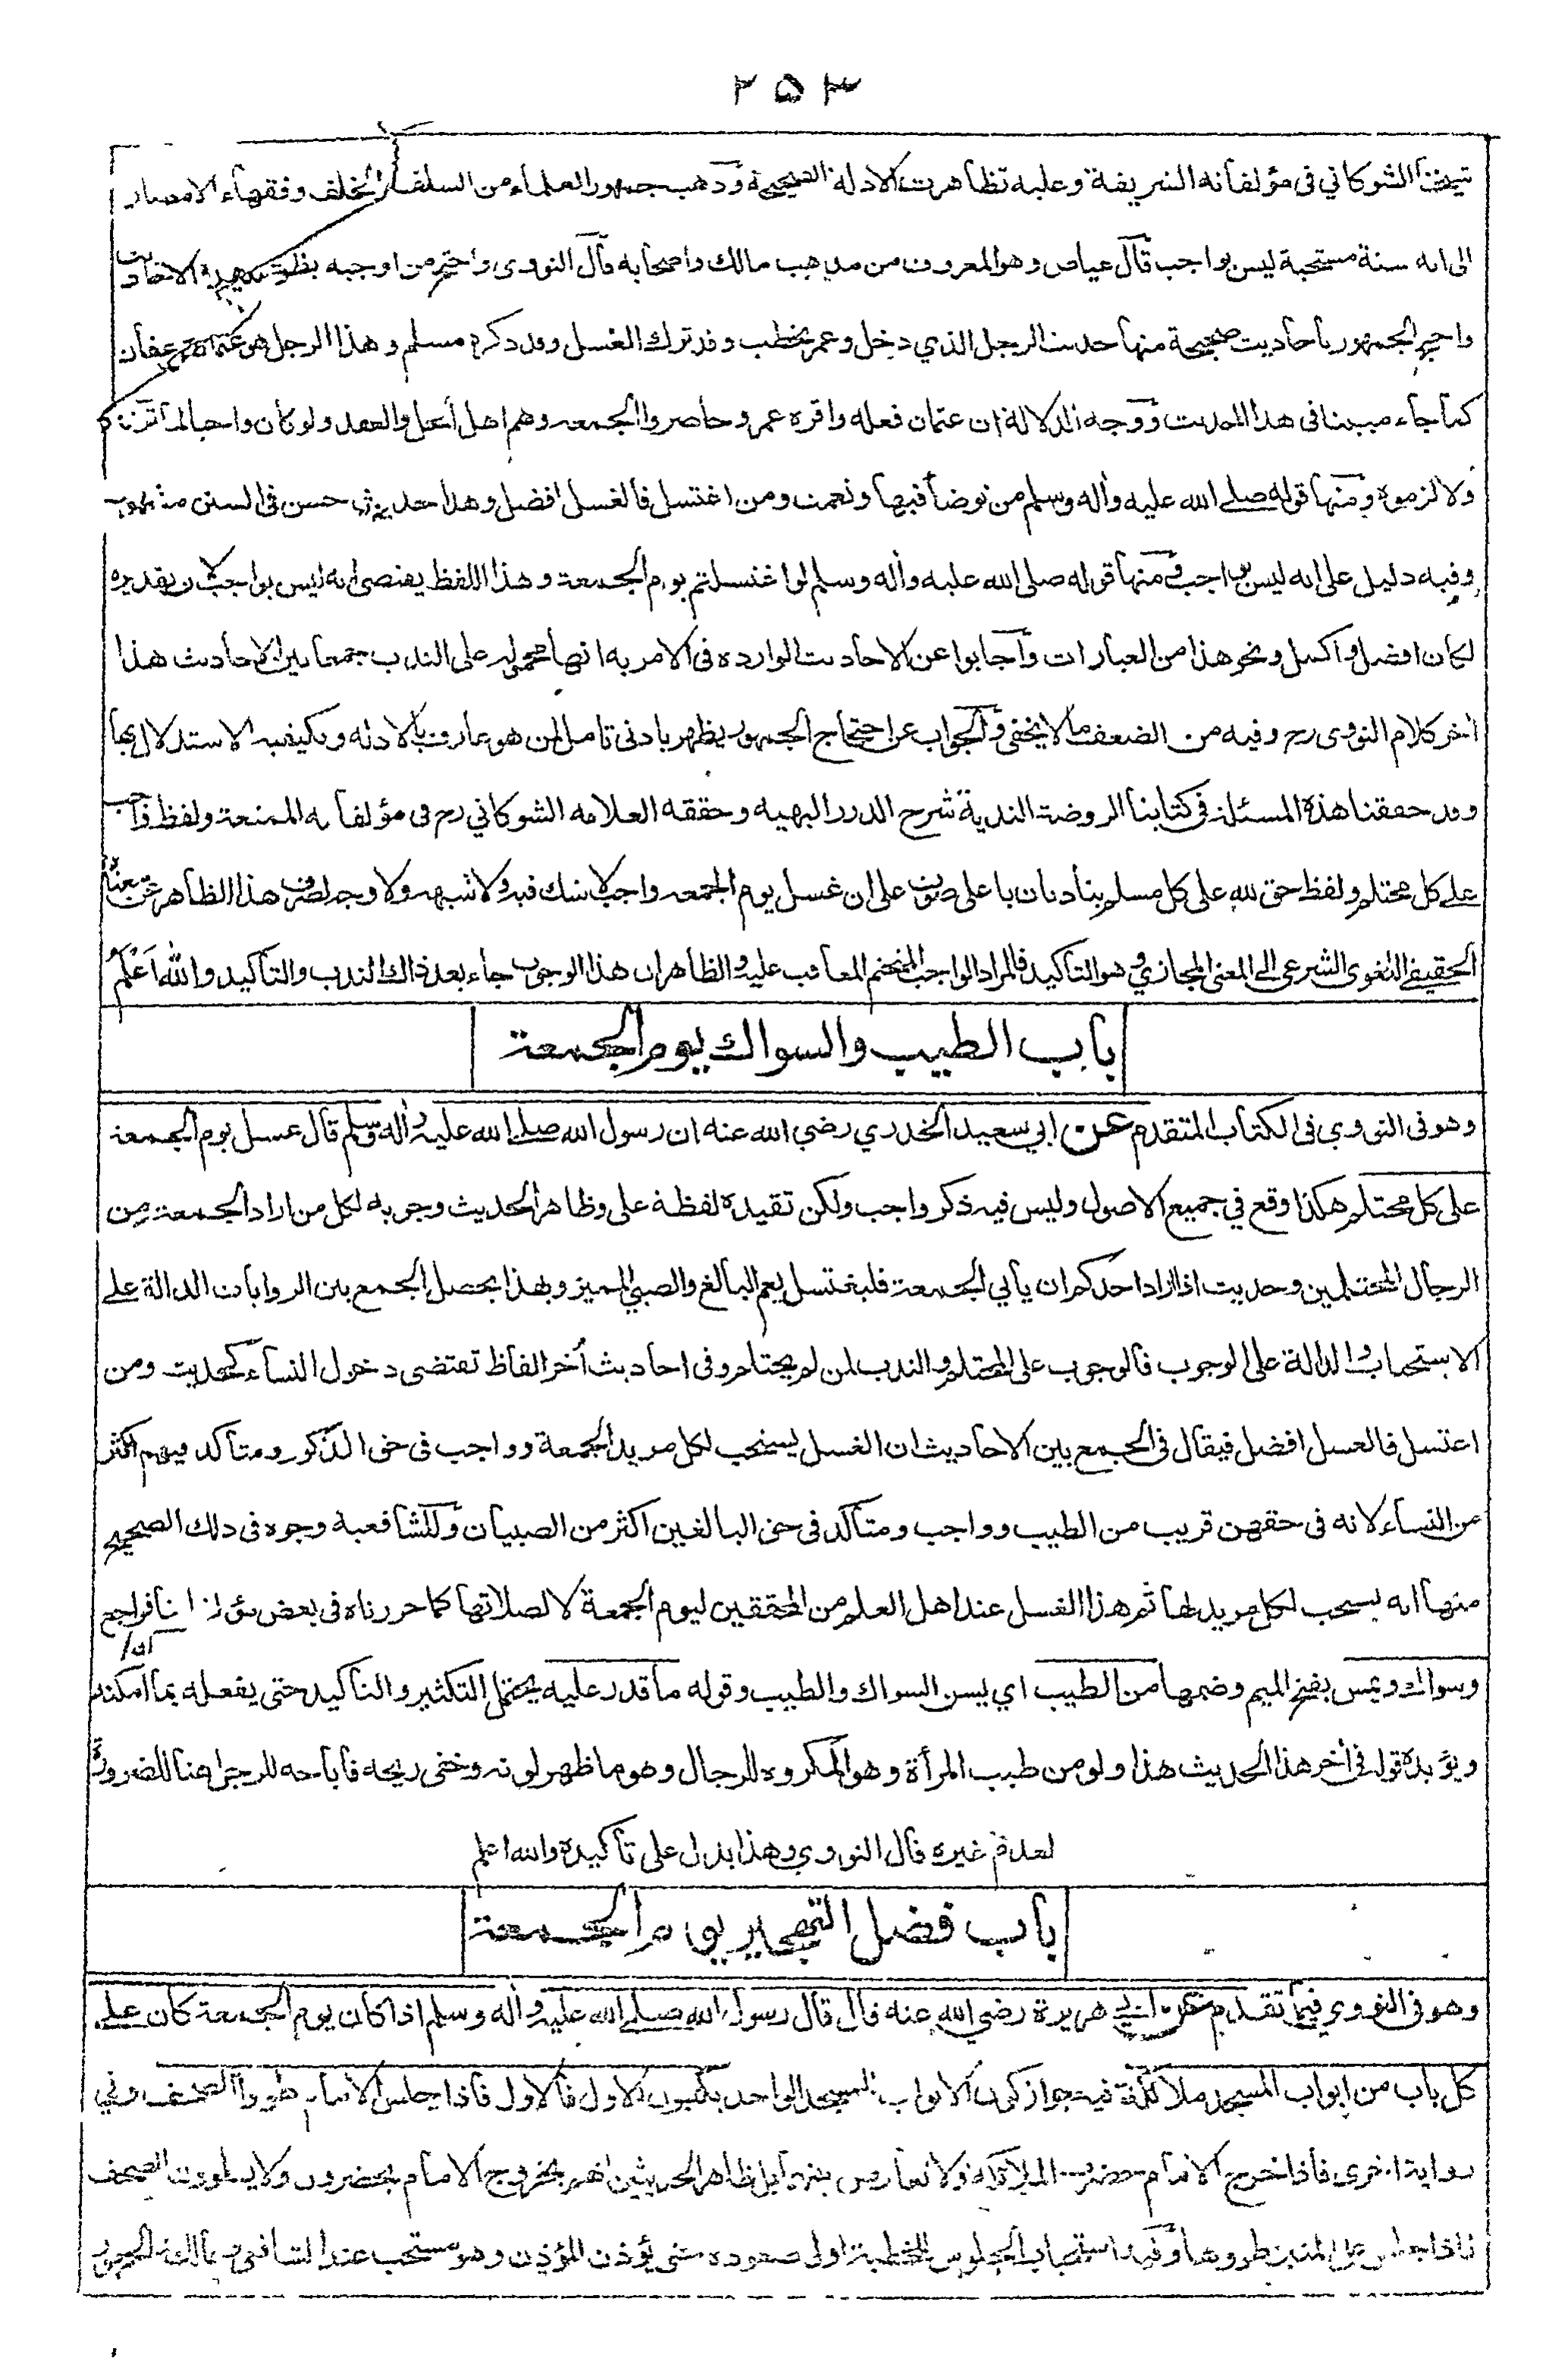 ٢٥٣
شيخنا الشوكاني في مؤلفاته الشريفة وعليه تظاهرت الادلة الصحيحة وذهب جمهور العلماء من السلف والخلف وفقهاء الامصار
الى انه سنة مستحبة ليس بواجب قال عياض وهو المعروف من مذهب مالك واصحابه قال النووى واحتج من اوجبه بظواهر هذه الاحاديث
واحتج الجمهور باحاديث صحيحة منها حديث الرجل الذي دخل وعمر يخطب وقد ترك الغسل وقد ذكره مسلم وهذا الرجل هو عثمان بن عفان
كما جاء مبينا في هذا الحديث ووجه الدلالة ان عثمان فعله واقره عمر وحاضروا الجمعة وهم اهل الحل والعقد ولو كان واجبا لما تركه
ولالزموه ومنها قوله صلے الله عليه واله وسلم من توضأ فبها ونعمت ومن اغتسل فالغسل افضل وهذا حديث حسن في السنن مشهور
وفيه دليل على انه ليس بواجب ومنها قوله صلى الله عليه واله وسلم لو اغتسلتم يوم الجمعة وهذا اللفظ يقتضى انه ليس بواجب لان تقديره
لكان افضل واكمل ونحو هذا من العبارات واجابوا عن الاحاديث الواردة فى الامر به انها محمولة على الندب جمعا بين الاحاديث هذا
اخر كلام النووى رح وفيه من الضعف ما لا يخفى والجواب عن احتجاج الجمهور يظهر بادنى تامل لمن هو عارف بالادلة وبكيفية الاستدلال بها
وقد حققنا هذه المسئلة في كتابنا الروضة الندية شرح الدرر البهية وحققه العلامة الشوكاني رح فى مؤلفاته الممتعة ولفظ واجب
علے كل محتلم ولفظ حق لله على كل مسلم يناديان باعلى صوت على ان غسل يوم الجمعة واجب لا شك فيه ولا شبهة ولا وجه لصرف هذا الظاهر عن معناه
الحقيقے اللغوى الشرعى الے المعنى المجازي وهو التاكيد فالمراد الواجب المتحتم المعاقب عليه والظاهر ان هذا الوجوب جاء بعد ذاك الندب والتأكيد والله اعلم
باب الطيب والسواك يوم الجمعة
وهو فى النووي فى الكتاب المتقدم عن ابي سعيد الخدري رضي الله عنه ان رسول الله صلے الله عليه واله وسلم قال غسل يوم الجمعة
على كل محتلم هكذا وقع في جميع الاصول وليس فيه ذكر واجب ولكن تقيده لفظة على وظاهر الحديث وجوبه لكل من اراد الجمعة من
الرجال المحتلمين وحديث اذا اراد احدكم ان يأتي الجمعة فليغتسل يعم البالغ والصبي المميز وبهذا يحصل الجمع بين الروايات الدالة علے
الاستحباب والدالة على الوجوب فالوجوب على المحتلم والندب لمن لم يحتلم وفى احاديث أخر الفاظ تقتضى دخول النساء كحديث ومن
اغتسل فالغسل افضل فيقال فى الجمع بين الاحاديث ان الغسل يستحب لكل مريد الجمعة وواجب فى حق الذكور ومتأكد فيهم اكثر
من النساء لانه فى حقهن قريب من الطيب وواجب ومتأكد فى حق البالغين اكثر من الصبيان وللشافعية وجوه فى ذلك الصحيح
منها انه يستحب لكل مريد لها ثم هذا الغسل عند اهل العلم من المحققين ليوم الجمعة لا لصلاتها كما حررناه فى بعض مؤلفاتنا فراجع
وسواك ويمس بفتح الميم وضمها من الطيب اي يسن السواك والطيب وقوله ما قدر عليه يحتمل التكثير والتأكيد حتى يفعله بما امكنه
ويؤيده قوله فى أخر هذا الحديث هذا ولو من طيب المرأة وهو المكروه للرجال وهو ما ظهر لونه وخفى ريحه فأباحه للرجل هنا للضرورة
لعدم غيره قال النووي وهذا يدل على تأكيده والله اعلم
باب فضل التهجير يوم الجمعة
وهو فى النووي فيما تقدم عن ابي هريرة رضي الله عنه قال قال رسول الله صلے الله عليه واله وسلم اذا كان يوم الجمعة كان علے
كل باب من ابواب المسجد ملائكة فيه جواز كون الابواب للمسجد الواحد يكتبون الاول فالاول فاذا جلس الامام طووا الصحف وفي
رواية اخرى فاذا خرج الامام حضرت الملائكة ولا تعارض بينهما بل ظاهر الحديثين انهم بخروج الامام يحضرون ولا يطوون الصحف
فاذا جلس على المنبر طووها وفيه استحباب الجلوس للخطبة اول صعوده حتى يؤذن المؤذن وهو مستحب عند الشافعى ومالك والجمهور